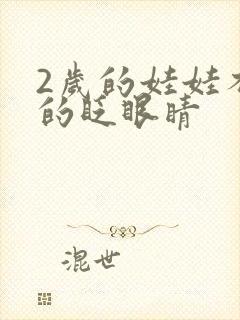 2歲的娃娃
的眨眼睛
混世